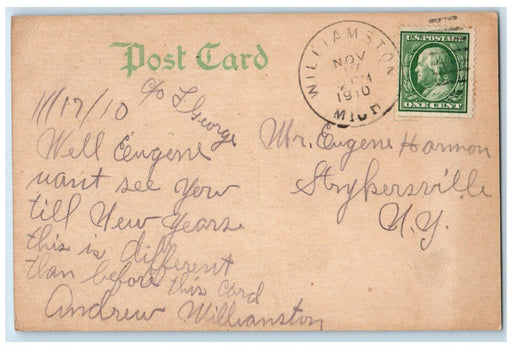 Post Card
WILLIAMSTON
NOV
17
2 PM
1910
MICH
U.S. POSTAGE
ONE CENT
11/17/10
c/o F George
Well Eugene
want see you
till New Years
this is different
than before this card
Andrew Williamston
Mr. Eugene Harmon
Strykersville
N.Y.